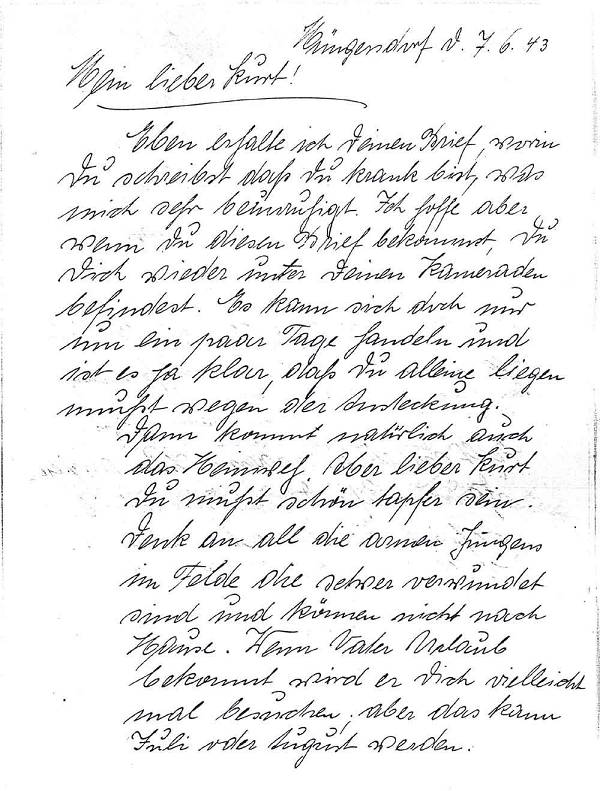 Müngersdorf d. 7.6.43
Mein lieber Kurt!
Eben erhalte ich Deinen Brief, worin
Du schreibst daß Du krank bist, was
mich sehr beunruhigt. Ich hoffe aber
wenn Du diesen Brief bekommst, Du
Dich wieder unter Deinen Kameraden
befindest. Es kann sich doch nur
um ein paar Tage handeln und
ist es ja klar, daß Du alleine liegen
mußt wegen der Ansteckung.
Dann kommt natürlich auch
das Heimweh. Aber lieber Kurt
Du mußt schön tapfer sein.
Denk an all die armen Jungens
im Felde die schwer verwundet
sind und können nicht nach
Hause. Wenn Vater Urlaub
bekommt wird er Dich vielleicht
mal besuchen, aber das kann
Juli oder August werden.